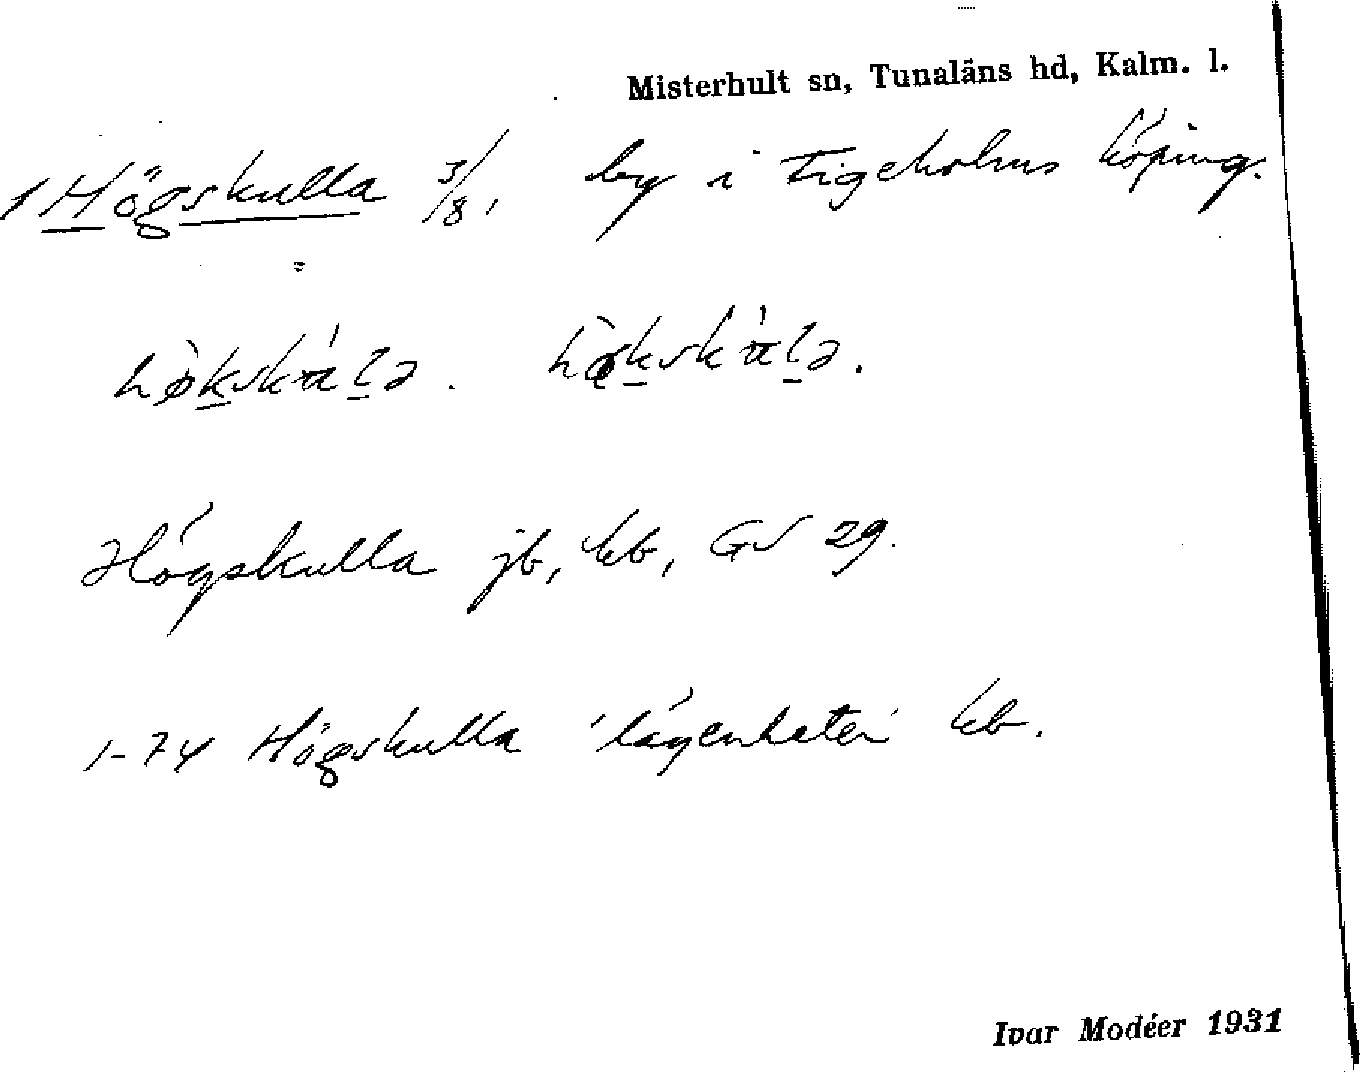 Misterhult sn, Tunaläns hd, Kalm. l.
1 Högskulla 3/8, by i Figeholms köping.
Högskulla jb, kb, GS 29.
1-74 Högskulla 'lägenheter' kb.
Ivar Modéer 1931